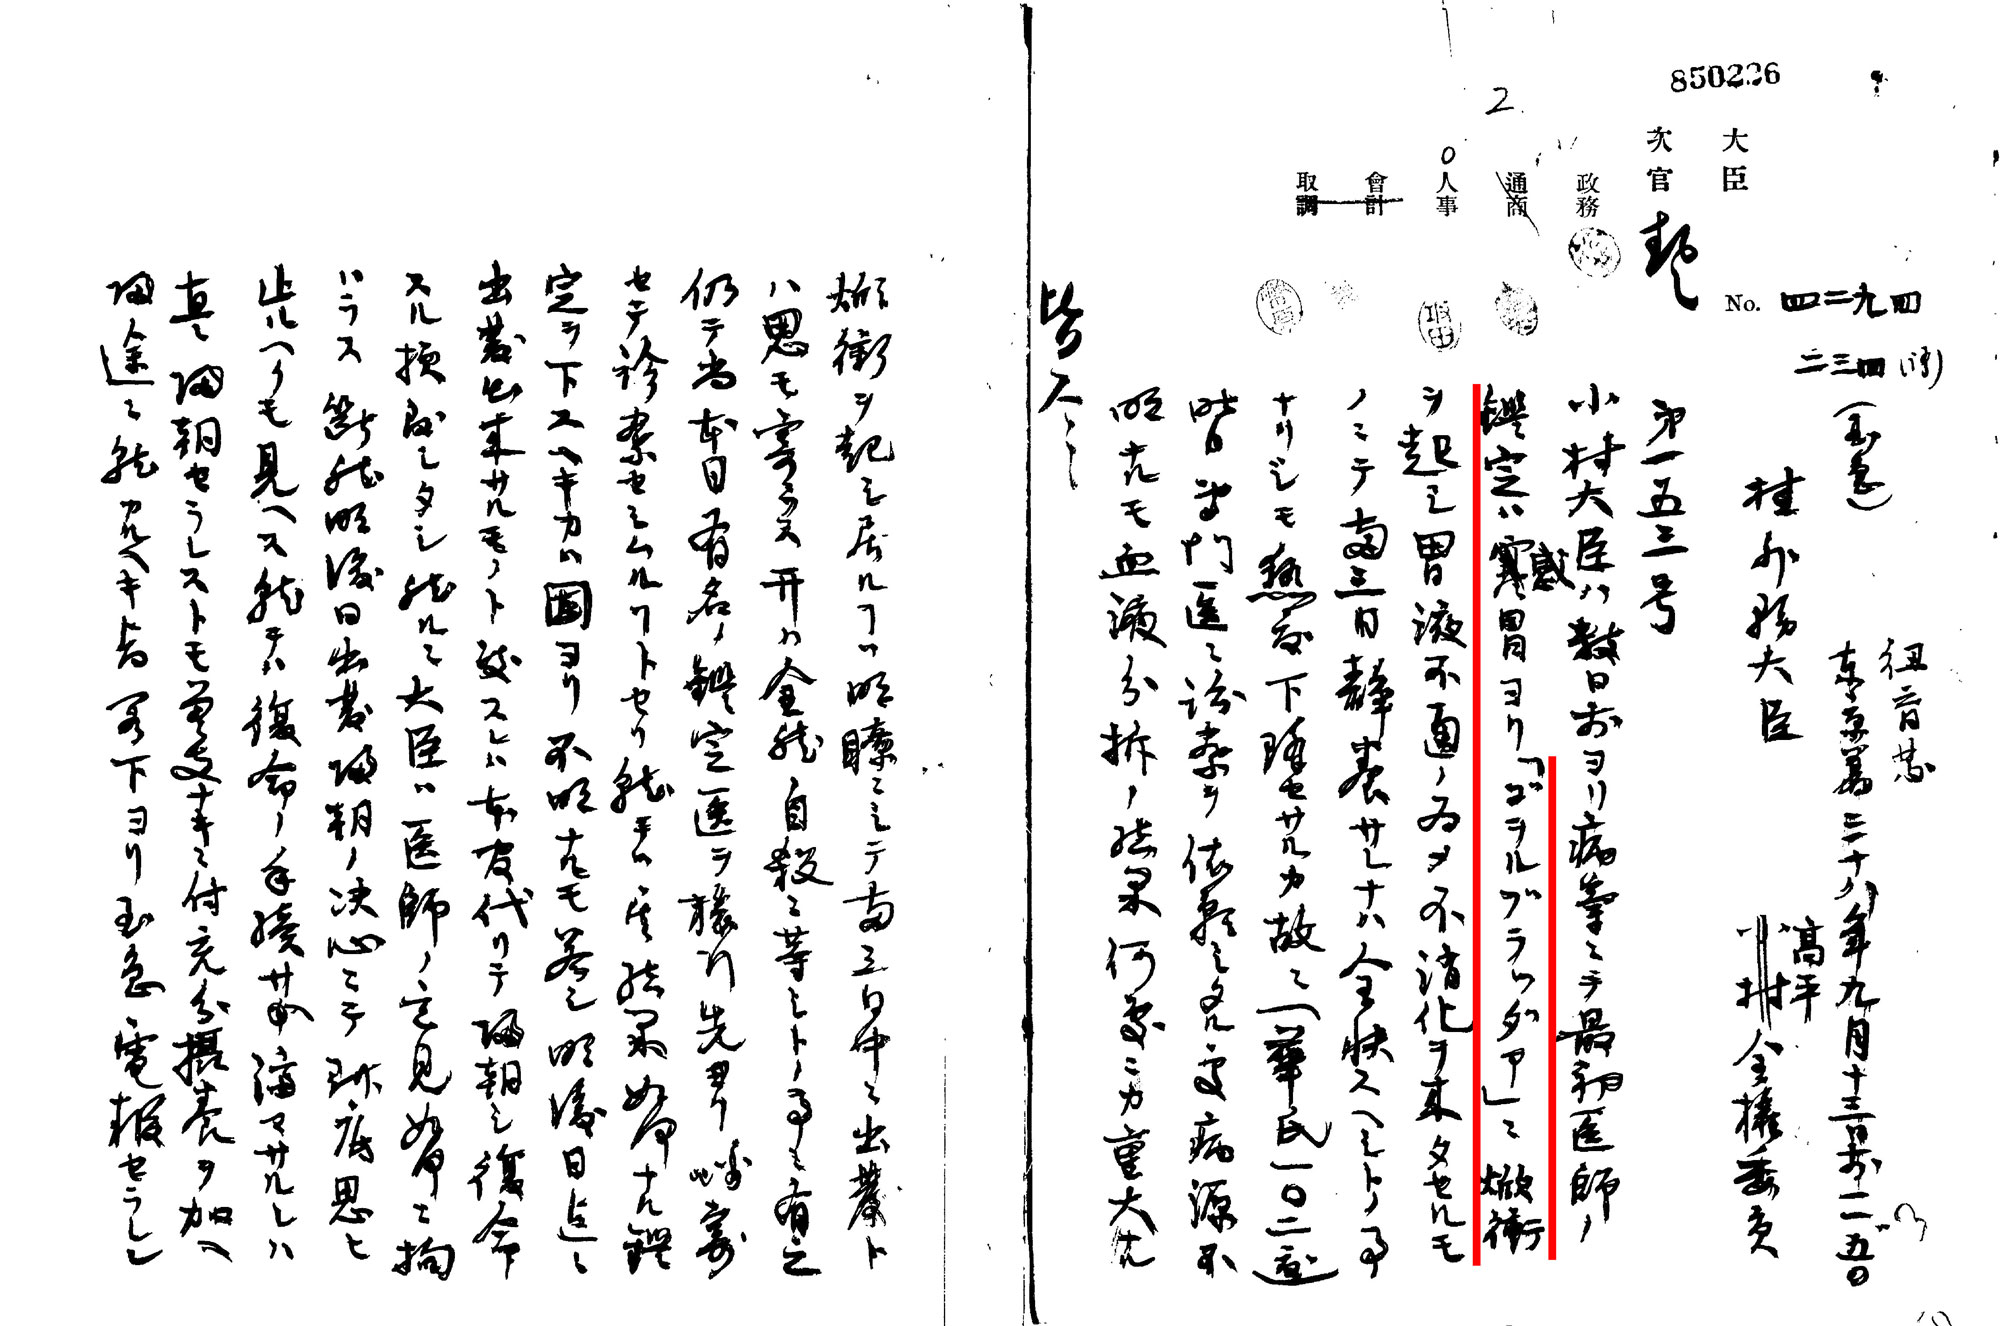 850226
2
大臣
次官
政務
通商
人事
會計
取調
No. 四二九四
二三四
(至急)
紐育発
東京着 三十八年九月十三日前一一、五〇
桂外務大臣
高平
小村 全権委員
第一五三号
小村大臣ハ数日前ヨリ病気ニテ最初医師ノ
鑑定ハ寒冒感ヨリ「ゴールブラッダア」ニ焮衝
ヲ起シ胃液不通ノ為メ不消化ヲ来タセルモ
ノニテ両三日静養サレナハ全快スヘシトノ事
ナリシモ熱度下降セサルカ故ニ(華氏一〇二度)
昨日専門医ニ診察ヲ依頼シタル処病源不
明ナルモ血液分拆ノ結果何処ニカ重大ナル
焮衝ヲ起シ居ルコハ明瞭ニシテ両三日中ニ出発ト
ハ思モ寄ラス开ハ全然自殺ニ等シトノ事ニ有之
仍テ尚本日有名ノ鑑定医ヲ
セテ診察セシムルコトセリ就テハ其結果如何ナル鑑
定ヲ下スヘキカハ固ヨリ不明ナルモ若シ明後日迄ニ
出発出来サルモノト致スレハ本官代リテ帰朝シ復命
スル積リニシタシ然ルニ大臣ハ医師ノ意見如何ニ拘
ハラス断然明後日出発帰朝ノ決心ニテ到底思ヒ
止ルヘクモ見ヘス就テハ復命ノ手続サヘ済マサルレハ
直ニ帰朝セラレストモ差支ナキニ付充分摂養ヲ加ヘ
帰途ニ就カルヘキ旨閣下ヨリ至急電報セラレ